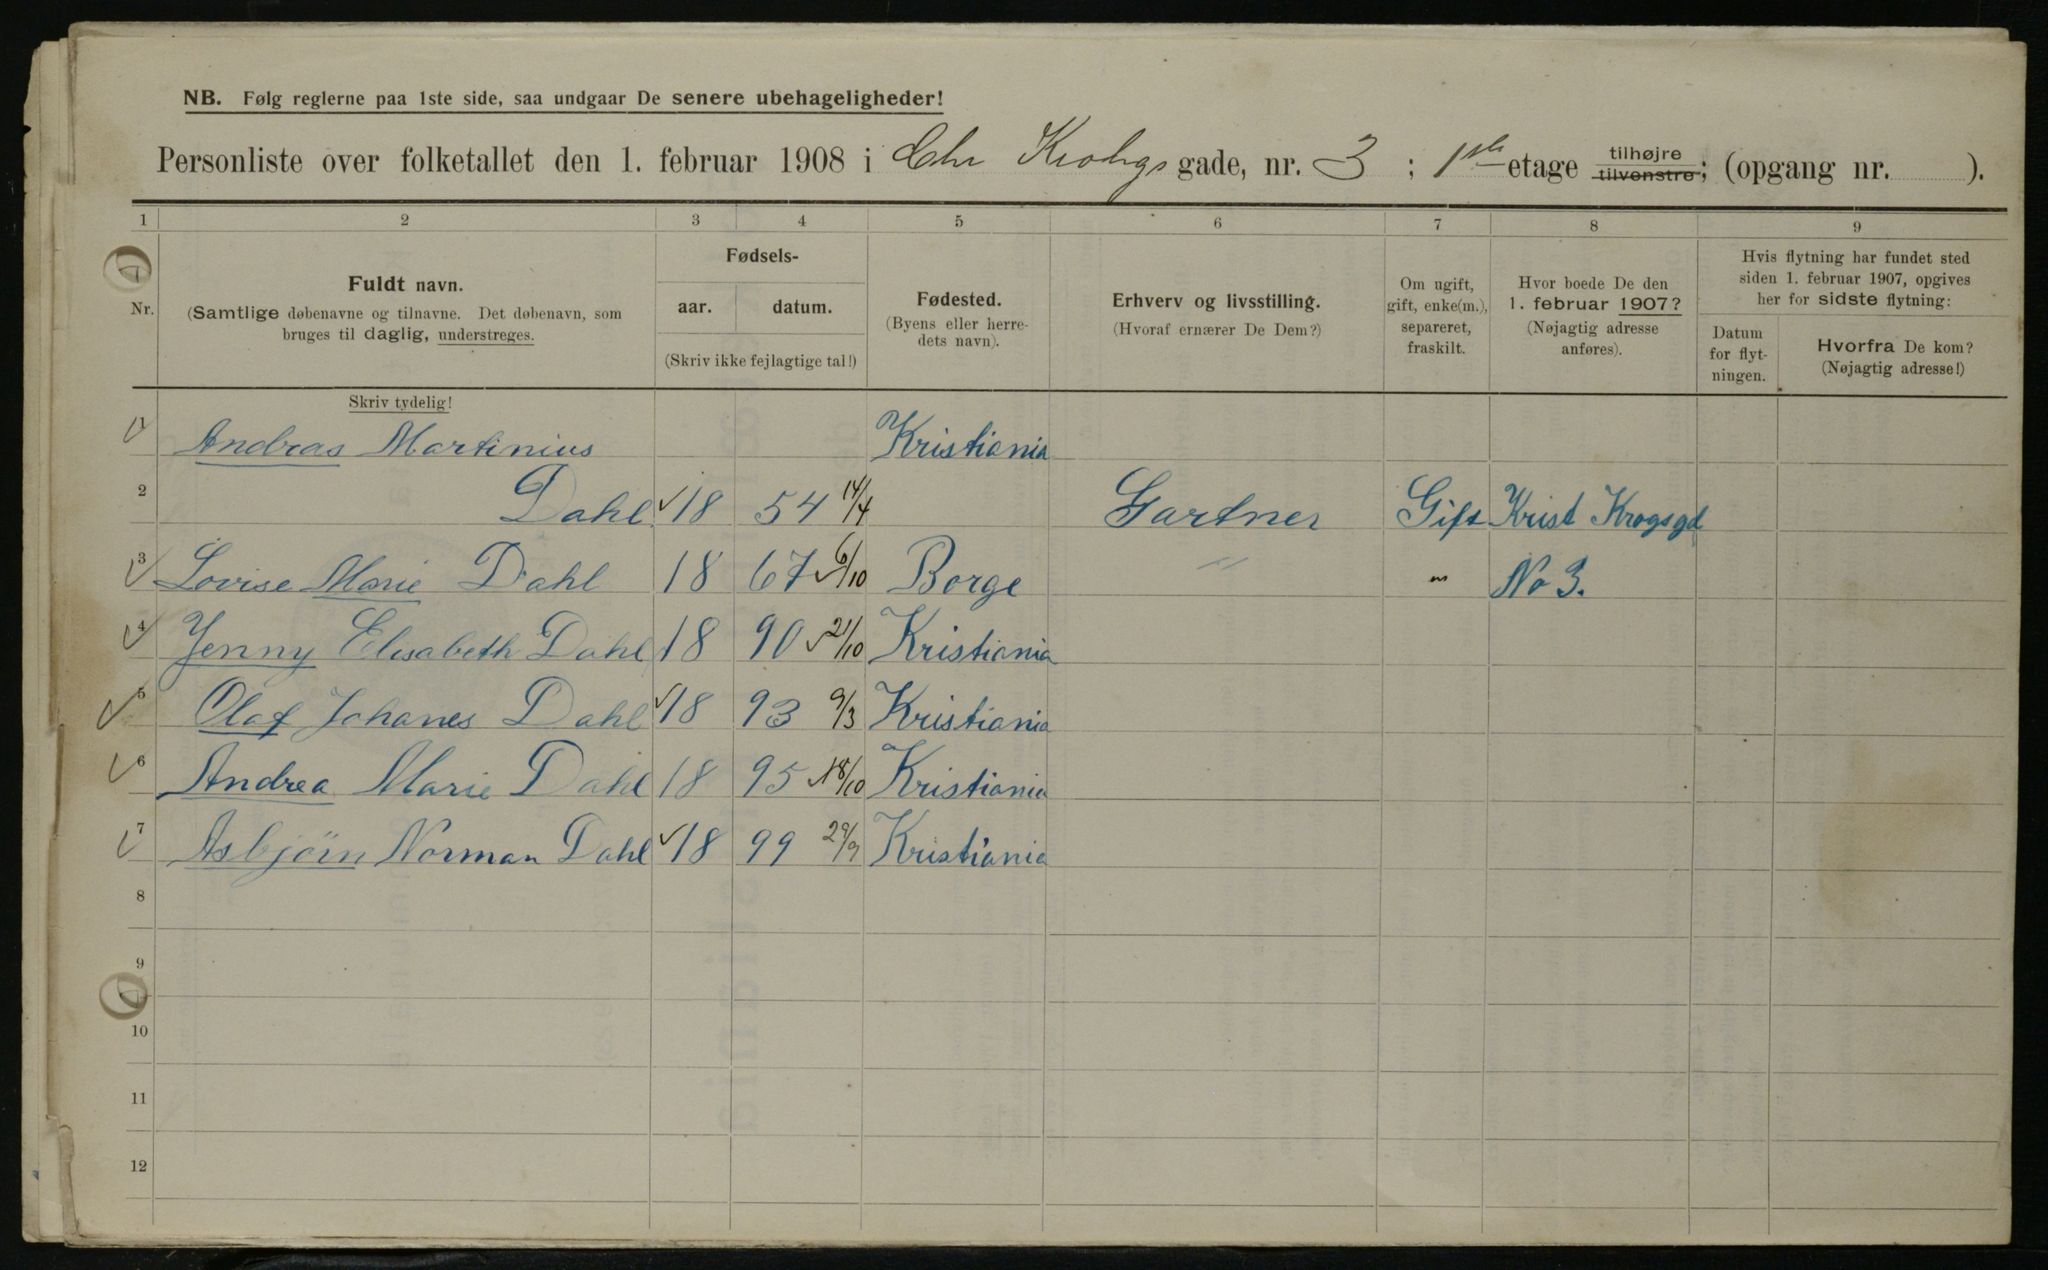 NB. Følg reglerne paa 1ste side, saa undgaar De senere ubehageligheder!
Personliste over folketallet den 1. februar 1908 i Chr Krohgs gade, nr. 3 ; 1ste etage tilhøjre tilvenstre; (opgang nr. ).
1 2 3 4 5 6 7 8 9
Nr.
Fuldt navn.
(Samtlige døbenavne og tilnavne. Det døbenavn, som
bruges til daglig, understreges.
Fødsels-
aar. datum.
(Skriv ikke fejlagtige tal!)
Fødested.
(Byens eller herre-
dets navn).
Erhverv og livsstilling.
(Hvoraf ernærer De Dem?)
Om ugift,
gift, enke(m.),
separeret,
fraskilt.
Hvor boede De den
1. februar 1907?
(Nøjagtig adresse
anføres).
Hvis flytning har fundet sted
siden 1. februar 1907, opgives
her for sidste flytning:
Datum
for flyt-
ningen.
Hvorfra De kom?
(Nøjagtig adresse!)
Skriv tydelig!
1 Andras Martinius Kristiania
2 Dahl 18 54 14/4 Gartner Gift Krist Krogsgd
3 Lovise Marie Dahl 18 67 6/10 Borge " " No 3.
4 Jenny Elisabeth Dahl 18 90 21/10 Kristiania
5 Olaf Johanes Dahl 18 93 9/3 Kristiania
6 Andrea Marie Dahl 18 95 18/10 Kristiania
7 Asbjörn Norman Dahl 18 99 29/9 Kristiania
8
9
10
11
12